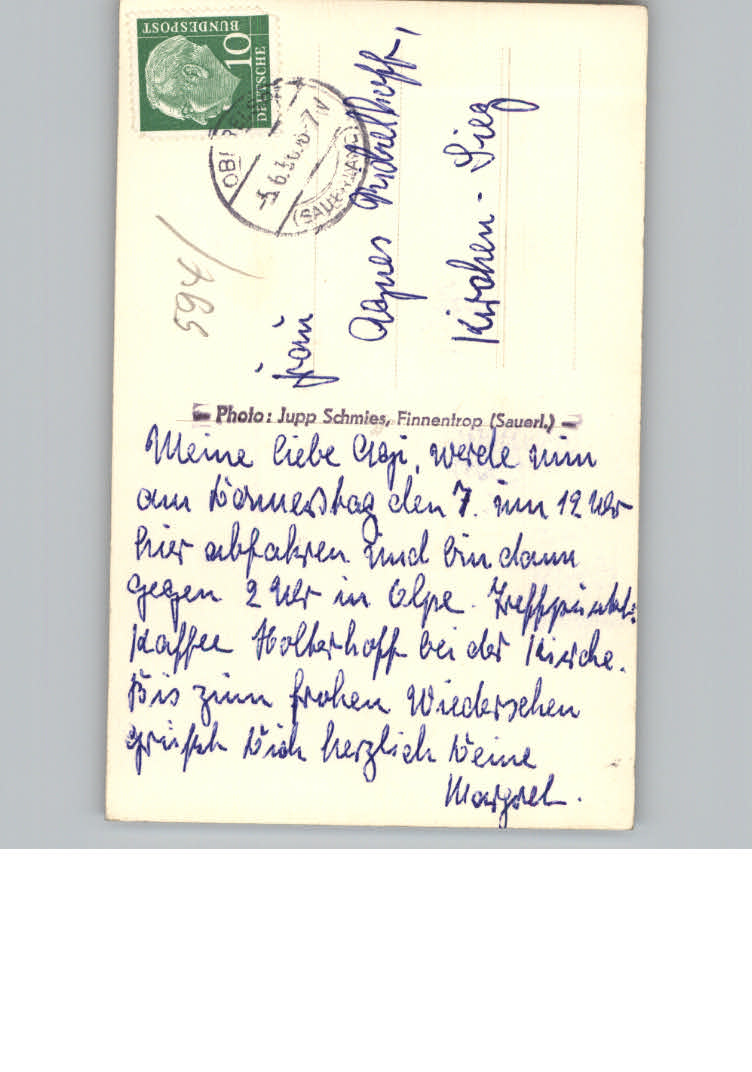 DEUTSCHE
BUNDESPOST
10
5.6.56.
(SAUERLAND)
594
Frau
Agnes
Kirchen - Sieg
Photo: Jupp Schmies, Finnentrop (Sauerl.)
Meine liebe Agi, werde nun
am Donnerstag den 7. um 12 Uhr
hier abfahren und bin dann
gegen 2 Uhr in Olpe. Treffpunkt:
Kaffee Holterhoff bei der Kirche.
Bis zum frohen Wiedersehen
grüßt Dich herzlich Deine
Margret.